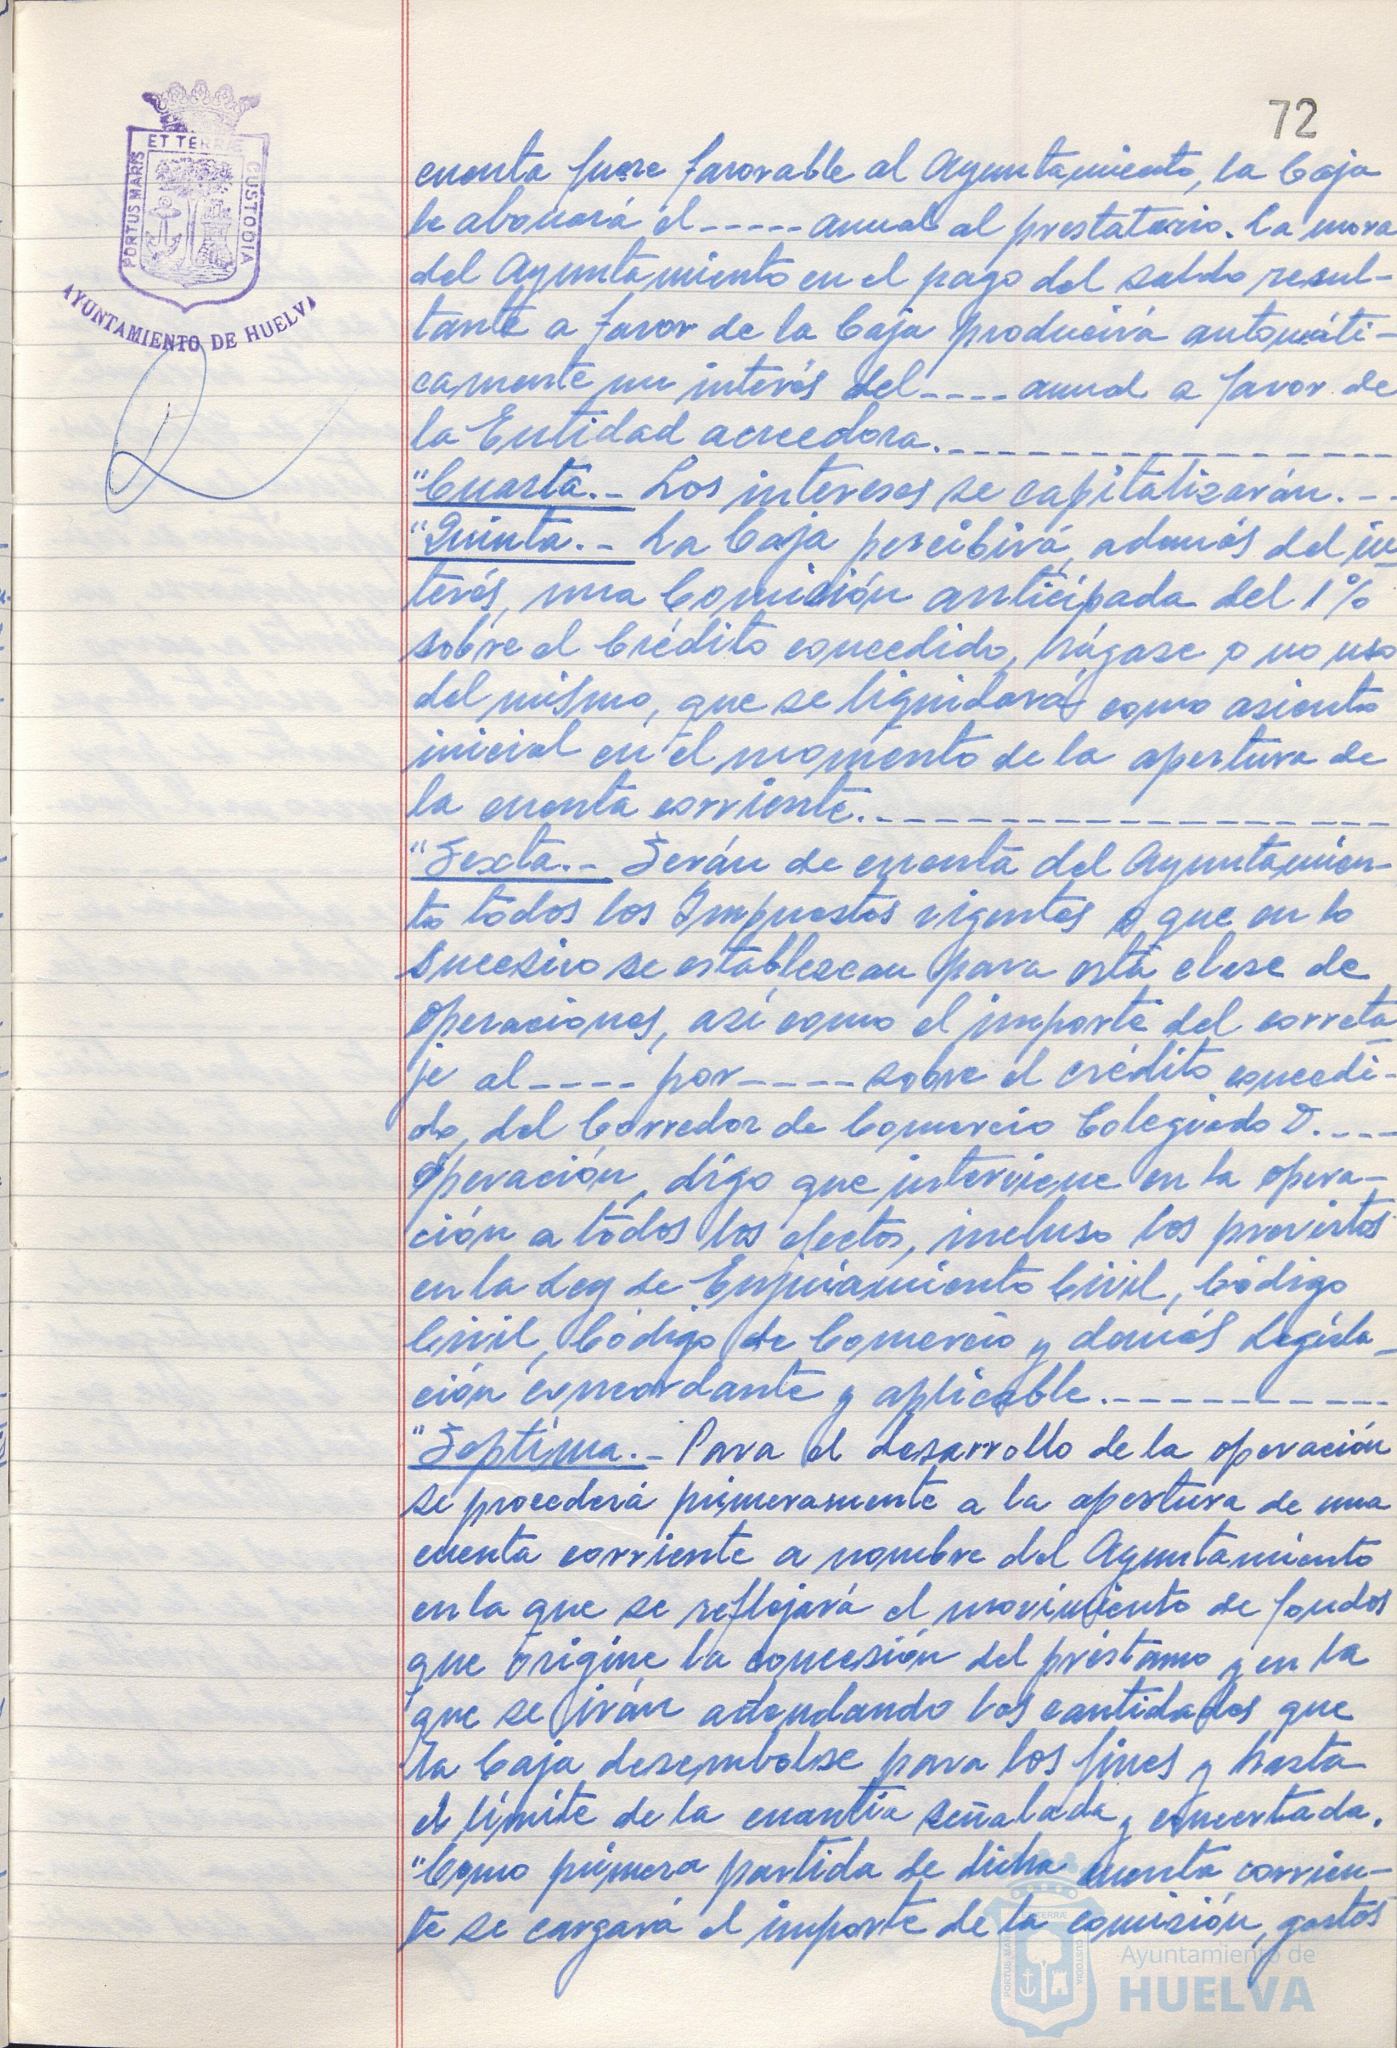 72
ET TERRÆ
PORTUS MARIS
CUSTODIA
AYUNTAMIENTO DE HUELVA
cuenta fuere favorable al Ayuntamiento, la Caja
le abonará el ----- anual al prestatario. La mora
del Ayuntamiento en el pago del saldo resul-
tante a favor de la Caja producirá automáti-
camente un interés del ---- anual a favor de
la Entidad acreedora.
"Cuarta.- Los intereses se capitalizarán.-
"Quinta.- La Caja percibirá, además del in-
terés, una Comisión anticipada del 1%
sobre el Crédito concedido, hágase o no uso
del mismo, que se liquidará como asiento
inicial en el momento de la apertura de
la cuenta corriente.
"Sexta.- Serán de cuenta del Ayuntamien-
to todos los Impuestos vigentes o que en lo
sucesivo se establezcan para esta clase de
operaciones, así como el importe del correta-
je al ---- por ---- sobre el crédito concedi-
do, del Corredor de Comercio Colegiado D. ---
operación, digo que interviene en la opera-
ción a todos los efectos, incluso los previstos
en la Ley de Enjuiciamiento Civil, Código
Civil, Código de Comercio y demás Legisla-
ción concordante y aplicable.
"Septima.- Para el desarrollo de la operación
se procederá primeramente a la apertura de una
cuenta corriente a nombre del Ayuntamiento
en la que se reflejará el movimiento de fondos
que origine la concesión del préstamo y en la
que se irán adeudando las cantidades que
la Caja desembolse para los fines y hasta
el límite de la cuantía señalada y concertada.
"Como primera partida de dicha cuenta corrien-
te se cargará el importe de la comisión, gastos
Ayuntamiento de
HUELVA